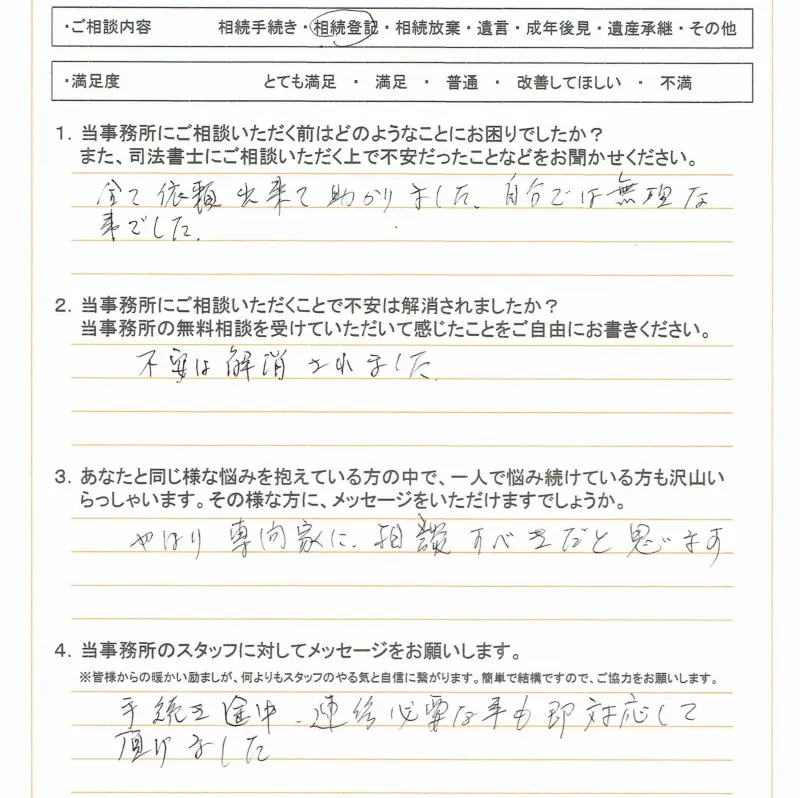 ・ご相談内容 相続手続き・相続登記・相続放棄・遺言・成年後見・遺産承継・その他
・満足度 とても満足 ・ 満足 ・ 普通 ・ 改善してほしい ・ 不満
1. 当事務所にご相談いただく前はどのようなことにお困りでしたか？
また、司法書士にご相談いただく上で不安だったことなどをお聞かせください。
全て依頼出来て助かりました、自分では無理な
事でした。
2. 当事務所にご相談いただくことで不安は解消されましたか？
当事務所の無料相談を受けていただいて感じたことをご自由にお書きください。
不安は解消されました。
3. あなたと同じ様な悩みを抱えている方の中で、一人で悩み続けている方も沢山い
らっしゃいます。その様な方に、メッセージをいただけますでしょうか。
やはり専門家に、相談すべきだと思います
4. 当事務所のスタッフに対してメッセージをお願いします。
※皆様からの暖かい励ましが、何よりもスタッフのやる気と自信に繋がります。簡単で結構ですので、ご協力をお願いします。
手続き途中、連絡必要な事も即対応して
頂けました